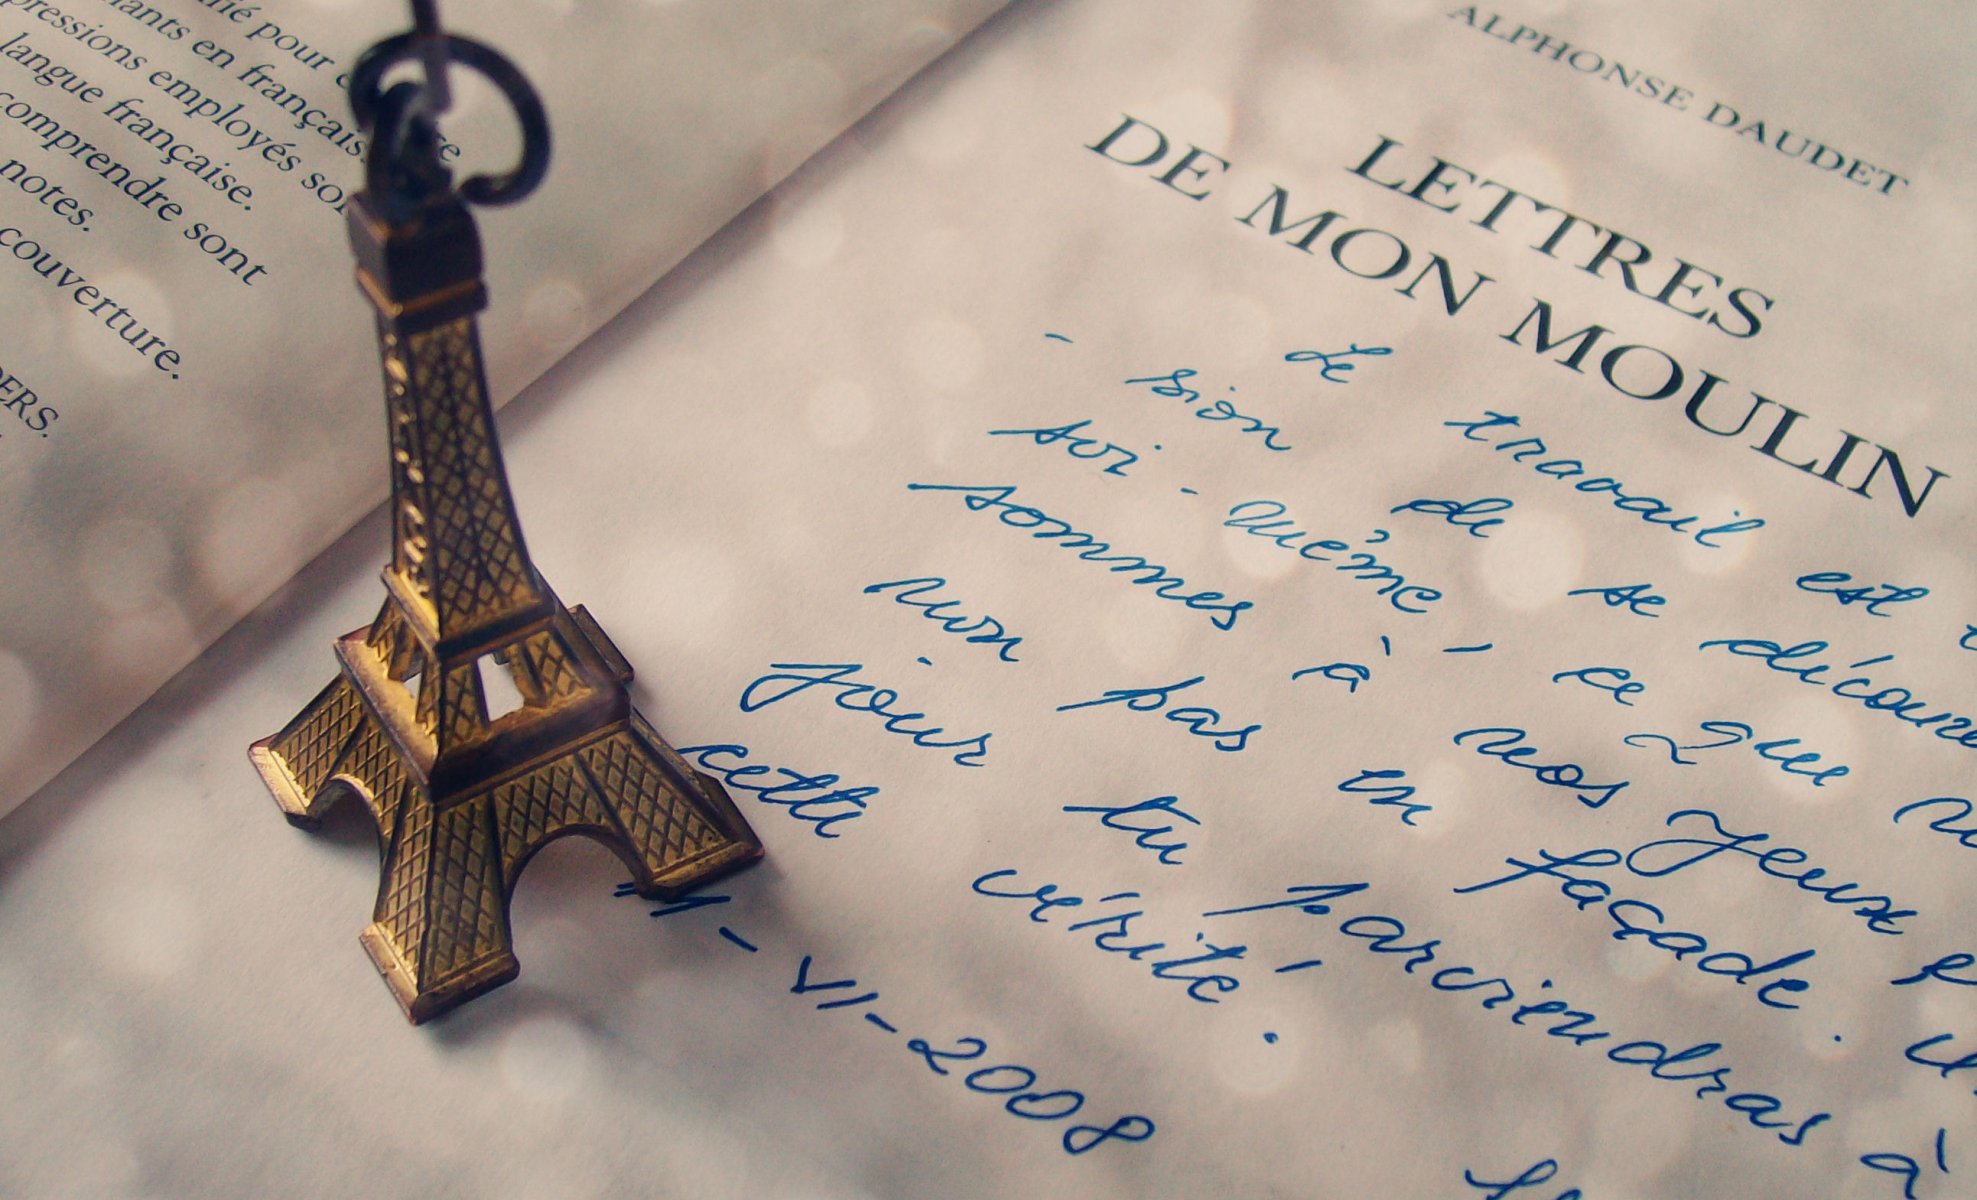 fié pour
ants en français.
pressions employés so
langue française.
comprendre sont
notes.
couverture.
DERS.
ALPHONSE DAUDET
LETTRES
DE MON MOULIN
Le travail est
- sion de se découvre
soi-même, ce que
sommes à nos yeux
non pas en façade. Un
jour tu parviendras à
cette vérité.
11-VI-2008